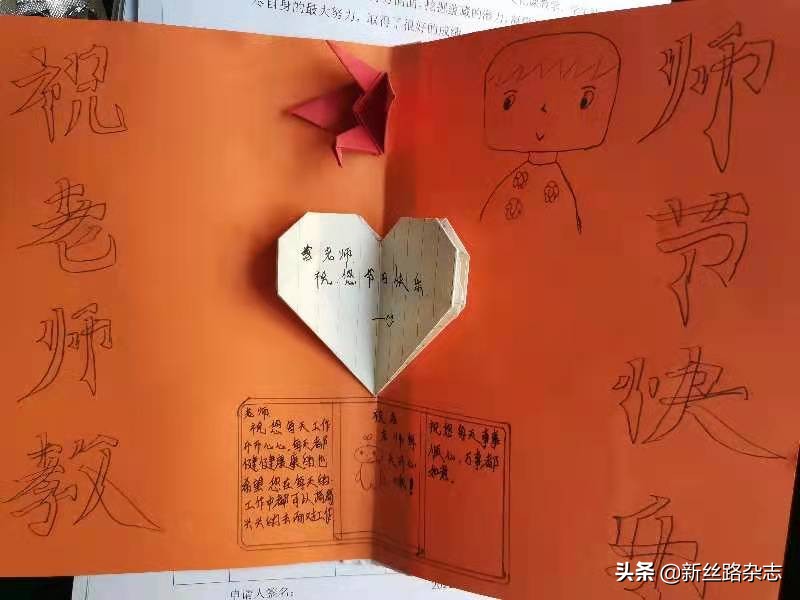 尽自身的最大努力，取得了很好的成绩
祝老师教
师节快乐
老师
祝您节日快乐
老师
祝您每天工作
开开心心，每天都
健健康康的也
希望您在每天的
工作中都可以高高
兴兴的去面对工作
祝您每天事事
顺心，万事都
如意。
申请人签名：
头条 @新丝路杂志